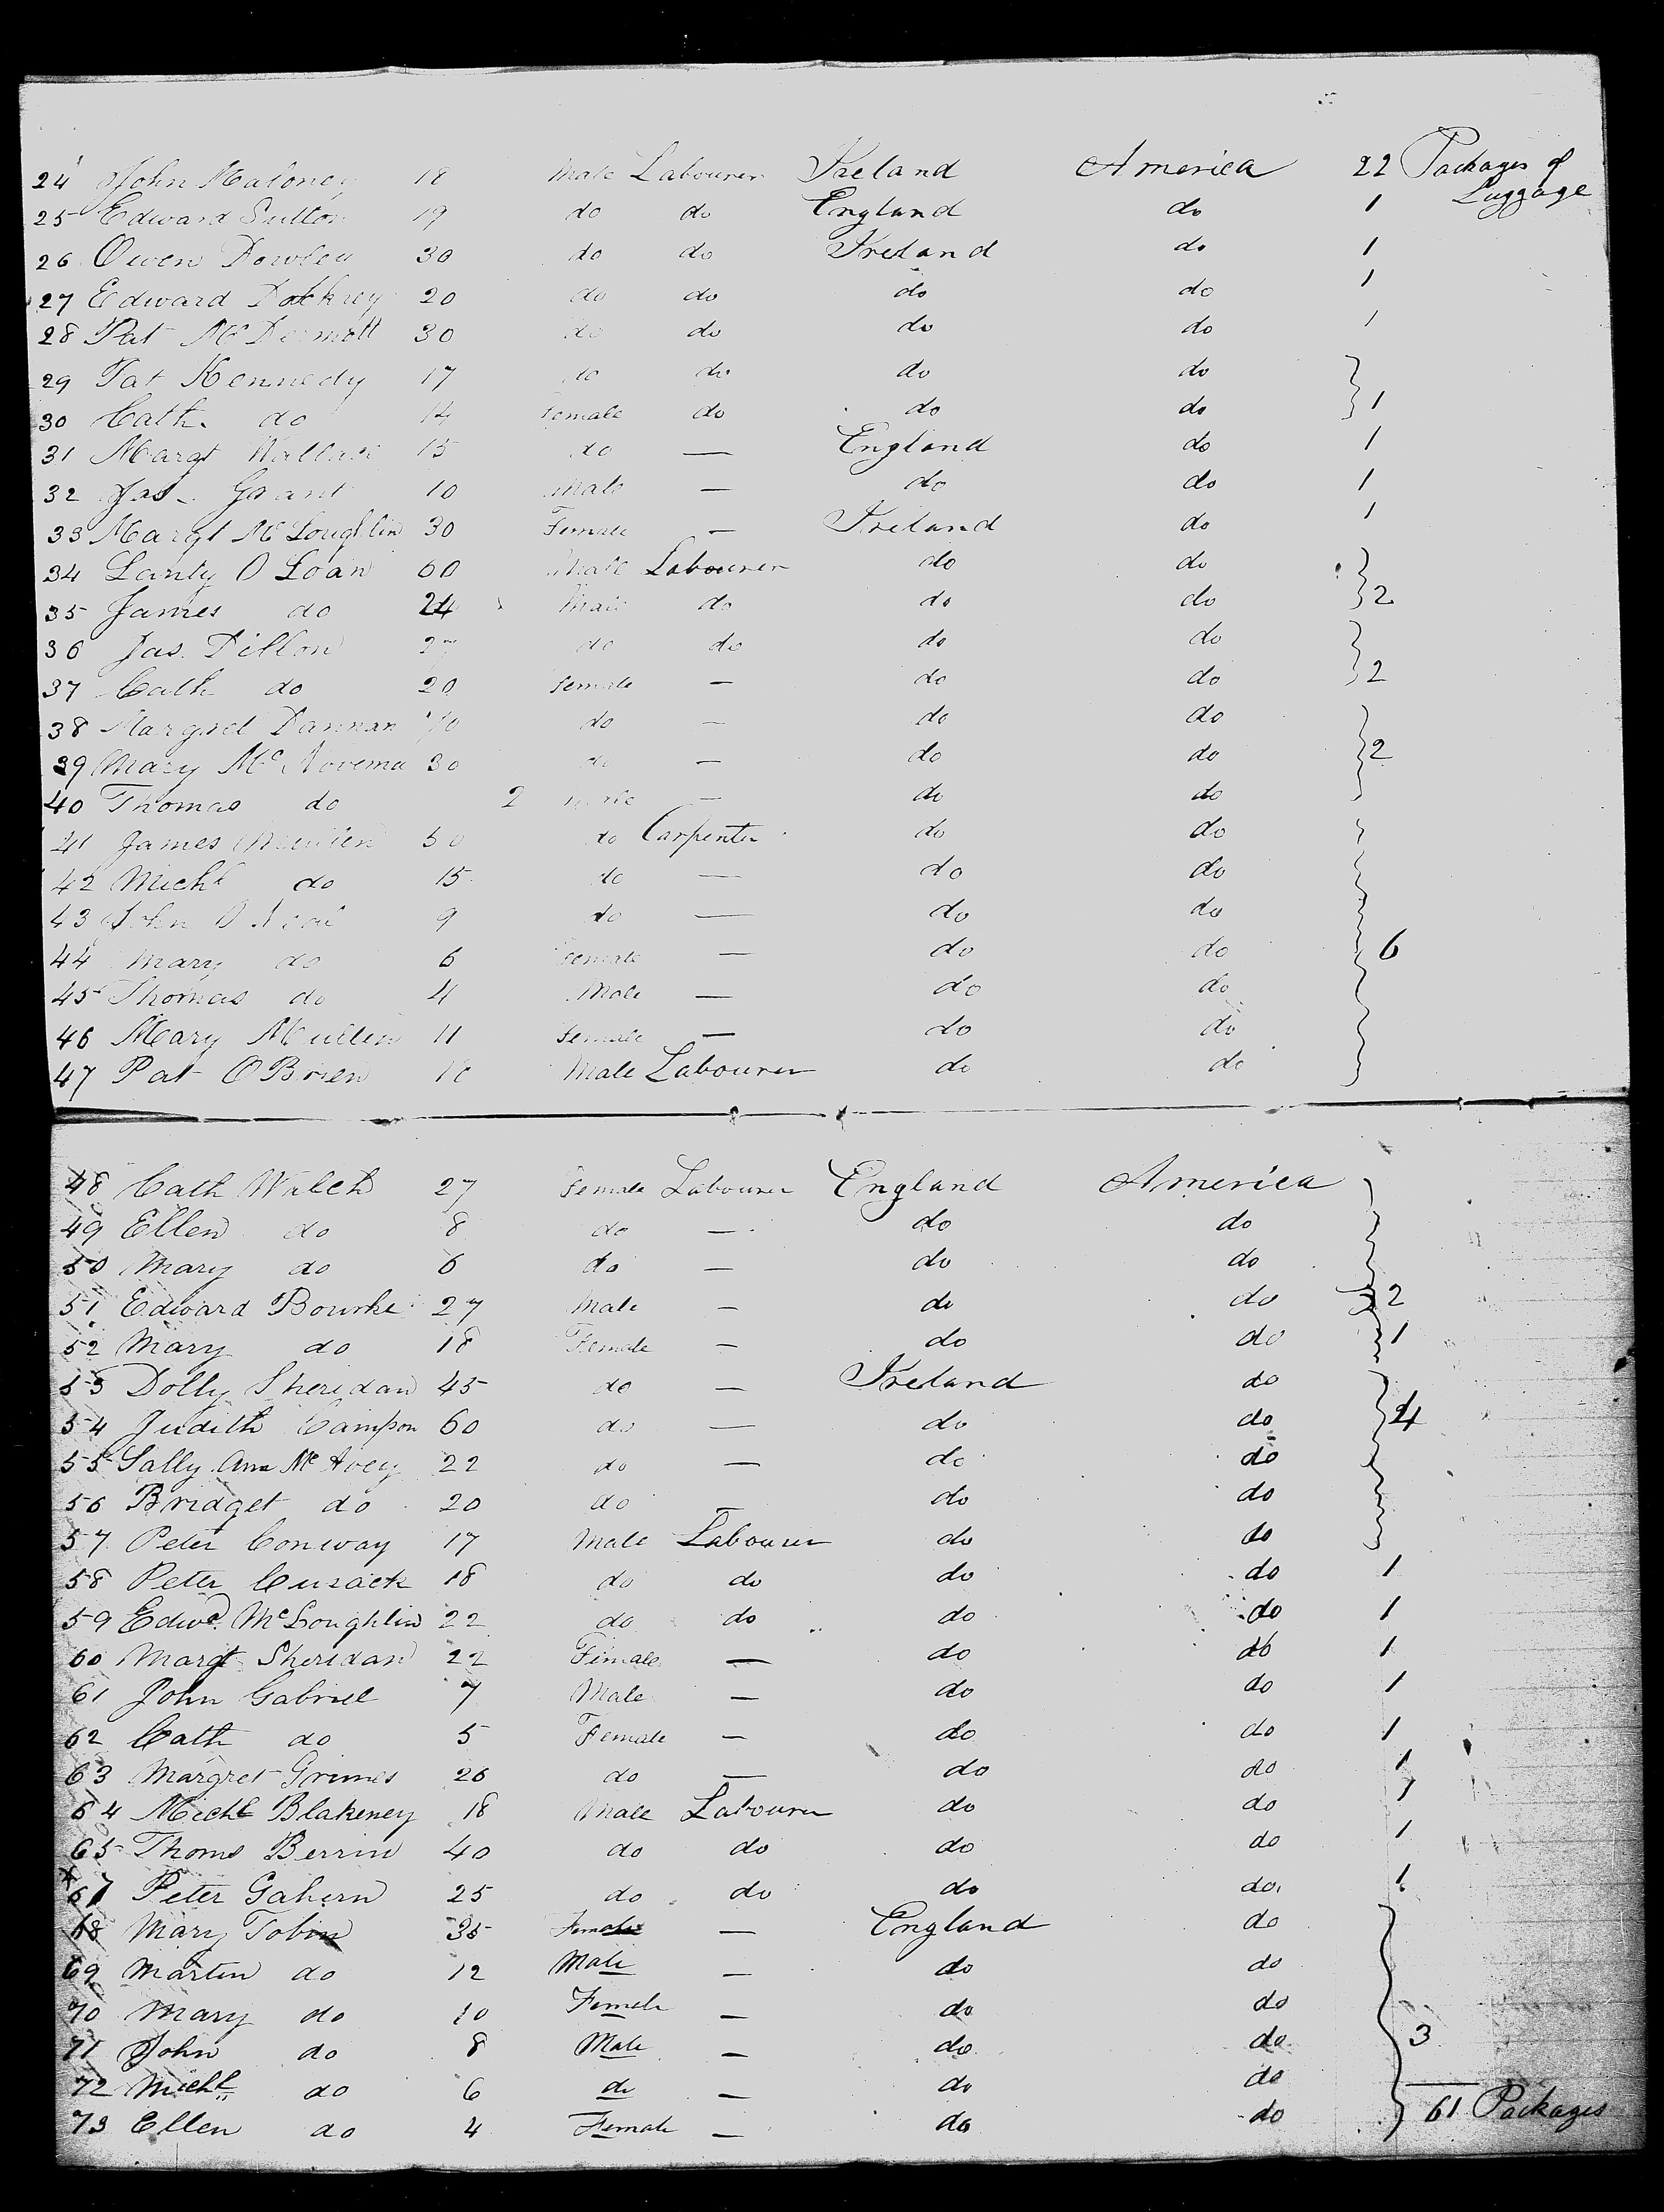 24 John Maloney 18 Male Labourer Ireland America 22 Packages of
Luggage
25 Edward Sutton 19 do do England do 1
26 Owen Dowley 30 do do Ireland do 1
27 Edward Dockrey 20 do do do do 1
28 Pat McDermott 30 do do do do 1
29 Pat Kennedy 17 do do do do
30 Cath. do 14 Female do do do 1
31 Margt Wallace 15 do — England do 1
32 Jas. Grant 10 Male — do do 1
33 Margt McLoughlin 30 Female — Ireland do 1
34 Lanty O Loan 60 Male Labourer do do
35 James do 24 Male do do do 2
36 Jas. Dillon 27 do do do do
37 Cath do 20 Female — do do 2
38 Margret Dannan do — do do
39 Mary Mc 30 do — do do 2
40 Thomas do 2 Male — do do
41 James 50 do Carpenter do do
42 Michl do 15 do — do do
43 John 9 do — do do
44 Mary do 6 Female — do do 6
45 Thomas do 4 Male — do do
46 Mary Mullen 11 Female — do do
47 Pat OBrien Male Labourer do do
48 Cath Walch 27 Female Labourer England America
49 Ellen do 8 do — do do
50 Mary do 6 do — do do
51 Edward Bourke 27 Male — do do 2
52 Mary do 18 Female — do do 1
53 Dolly Sheridan 45 do — Ireland do
54 Judith Campon 60 do — do do 4
55 Sally Ann McAvey 22 do — do do
56 Bridget do 20 do — do do
57 Peter Conway 17 Male Labourer do do
58 Peter Cusack 18 do do do do 1
59 Edwd. McLoughlin 22 do do do do 1
60 Margt Sheridan 22 Female — do do 1
61 John Gabriel 7 Male — do do 1
62 Cath do 5 Female — do do 1
63 Margret Grimes 26 do — do do 1
64 Michl Blakeney 18 Male Labourer do do 1
65 Thoms Berrin 40 do do do do 1
67 Peter Gahern 25 do do do do 1
68 Mary Tobin 35 Female — England do
69 Martin do 12 Male — do do
70 Mary do 10 Female — do do
71 John do 8 Male — do do 3
72 Michl do 6 do — do do
73 Ellen do 4 Female — do do 61 Packages